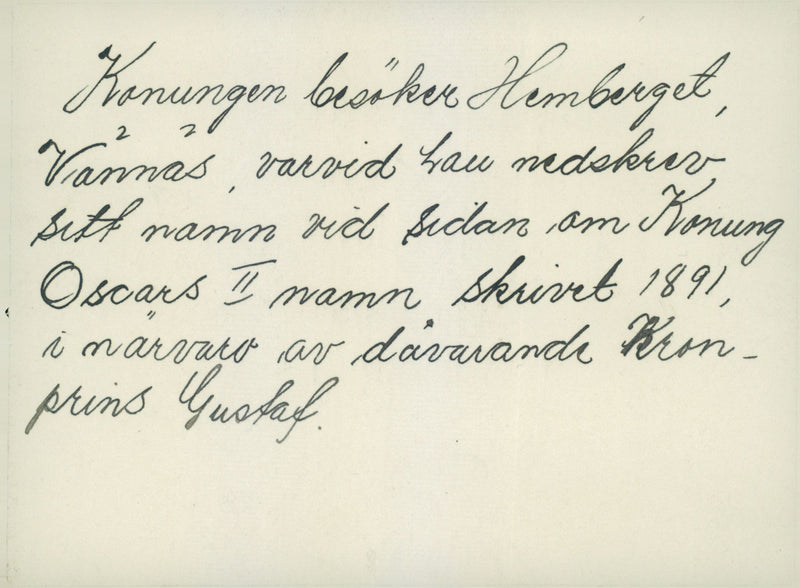 Konungen besöker Hemberget,
Vännäs, varvid han nedskrev
sitt namn vid sidan om Konung
Oscars II namn skrivet 1891,
i närvaro av dåvarande Kron-
prins Gustaf.